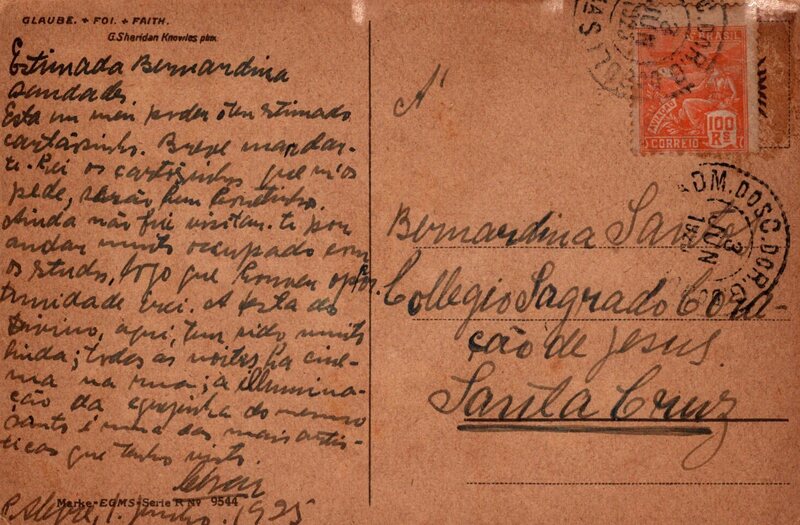 GLAUBE. + FOI. + FAITH.
G. Sheridan Knowles pinx.
Estimada Bernardina
saudades
Esta em meu poder o teu estimado
cartãosinho. Breve mandar-
te-hei os cartõesinhos que m'os
pede, serão bem
Ainda não fui visitar-te por
andar muito occupado com
os estudos, logo que houver opor-
tunidade irei. A festa do
Divino, aqui, tem sido muito
linda; todas as noites ha cine-
ma na rua; a illumina-
ção da egrejinha do mesmo
santo é uma das mais artis-
ticas que tenho visto.
P. Alegre, 1. Junho. 1925
Marke-EGMS-Serie R Nº 9544
A'
Bernardina Santos
Collegio Sagrado Cora-
ção de Jesus.
Santa Cruz
BRASIL
AVIAÇÃO
100 Rs
CORREIO
ADM. DOS C. DO R. G.
3
JUN